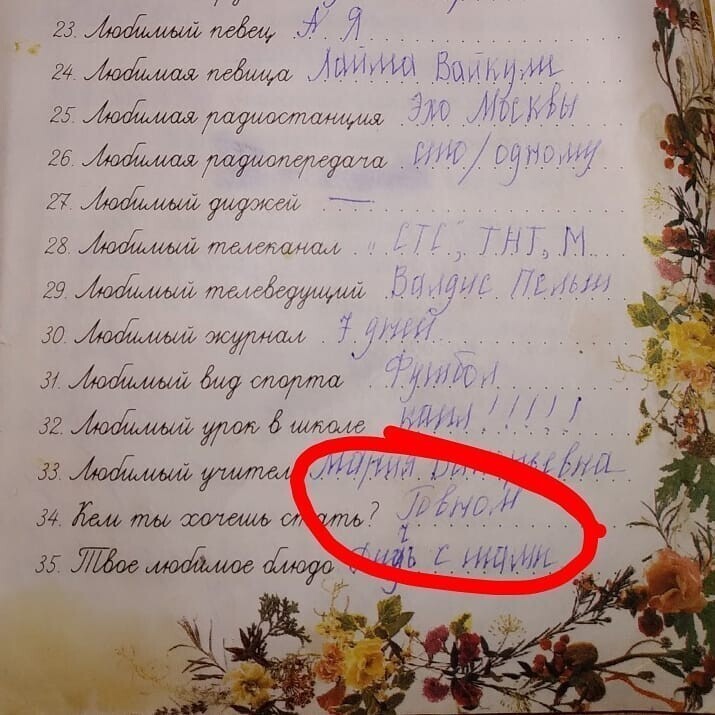 23. Любимый певец А Я
24. Любимая певица Лайма Вайкули
25. Любимая радиостанция Эхо Москвы
26. Любимая радиопередача сто/одному
27. Любимый диджей —
28. Любимый телеканал "СТС", ТНТ, М
29. Любимый телеведущий Валдис Пельш
30. Любимый журнал 7 дней
31. Любимый вид спорта Футбол
32. Любимый урок в школе кани!!!!!
33. Любимый учител Мария
34. Кем ты хочешь стать? Говном
35. Твое любимое блюдо с